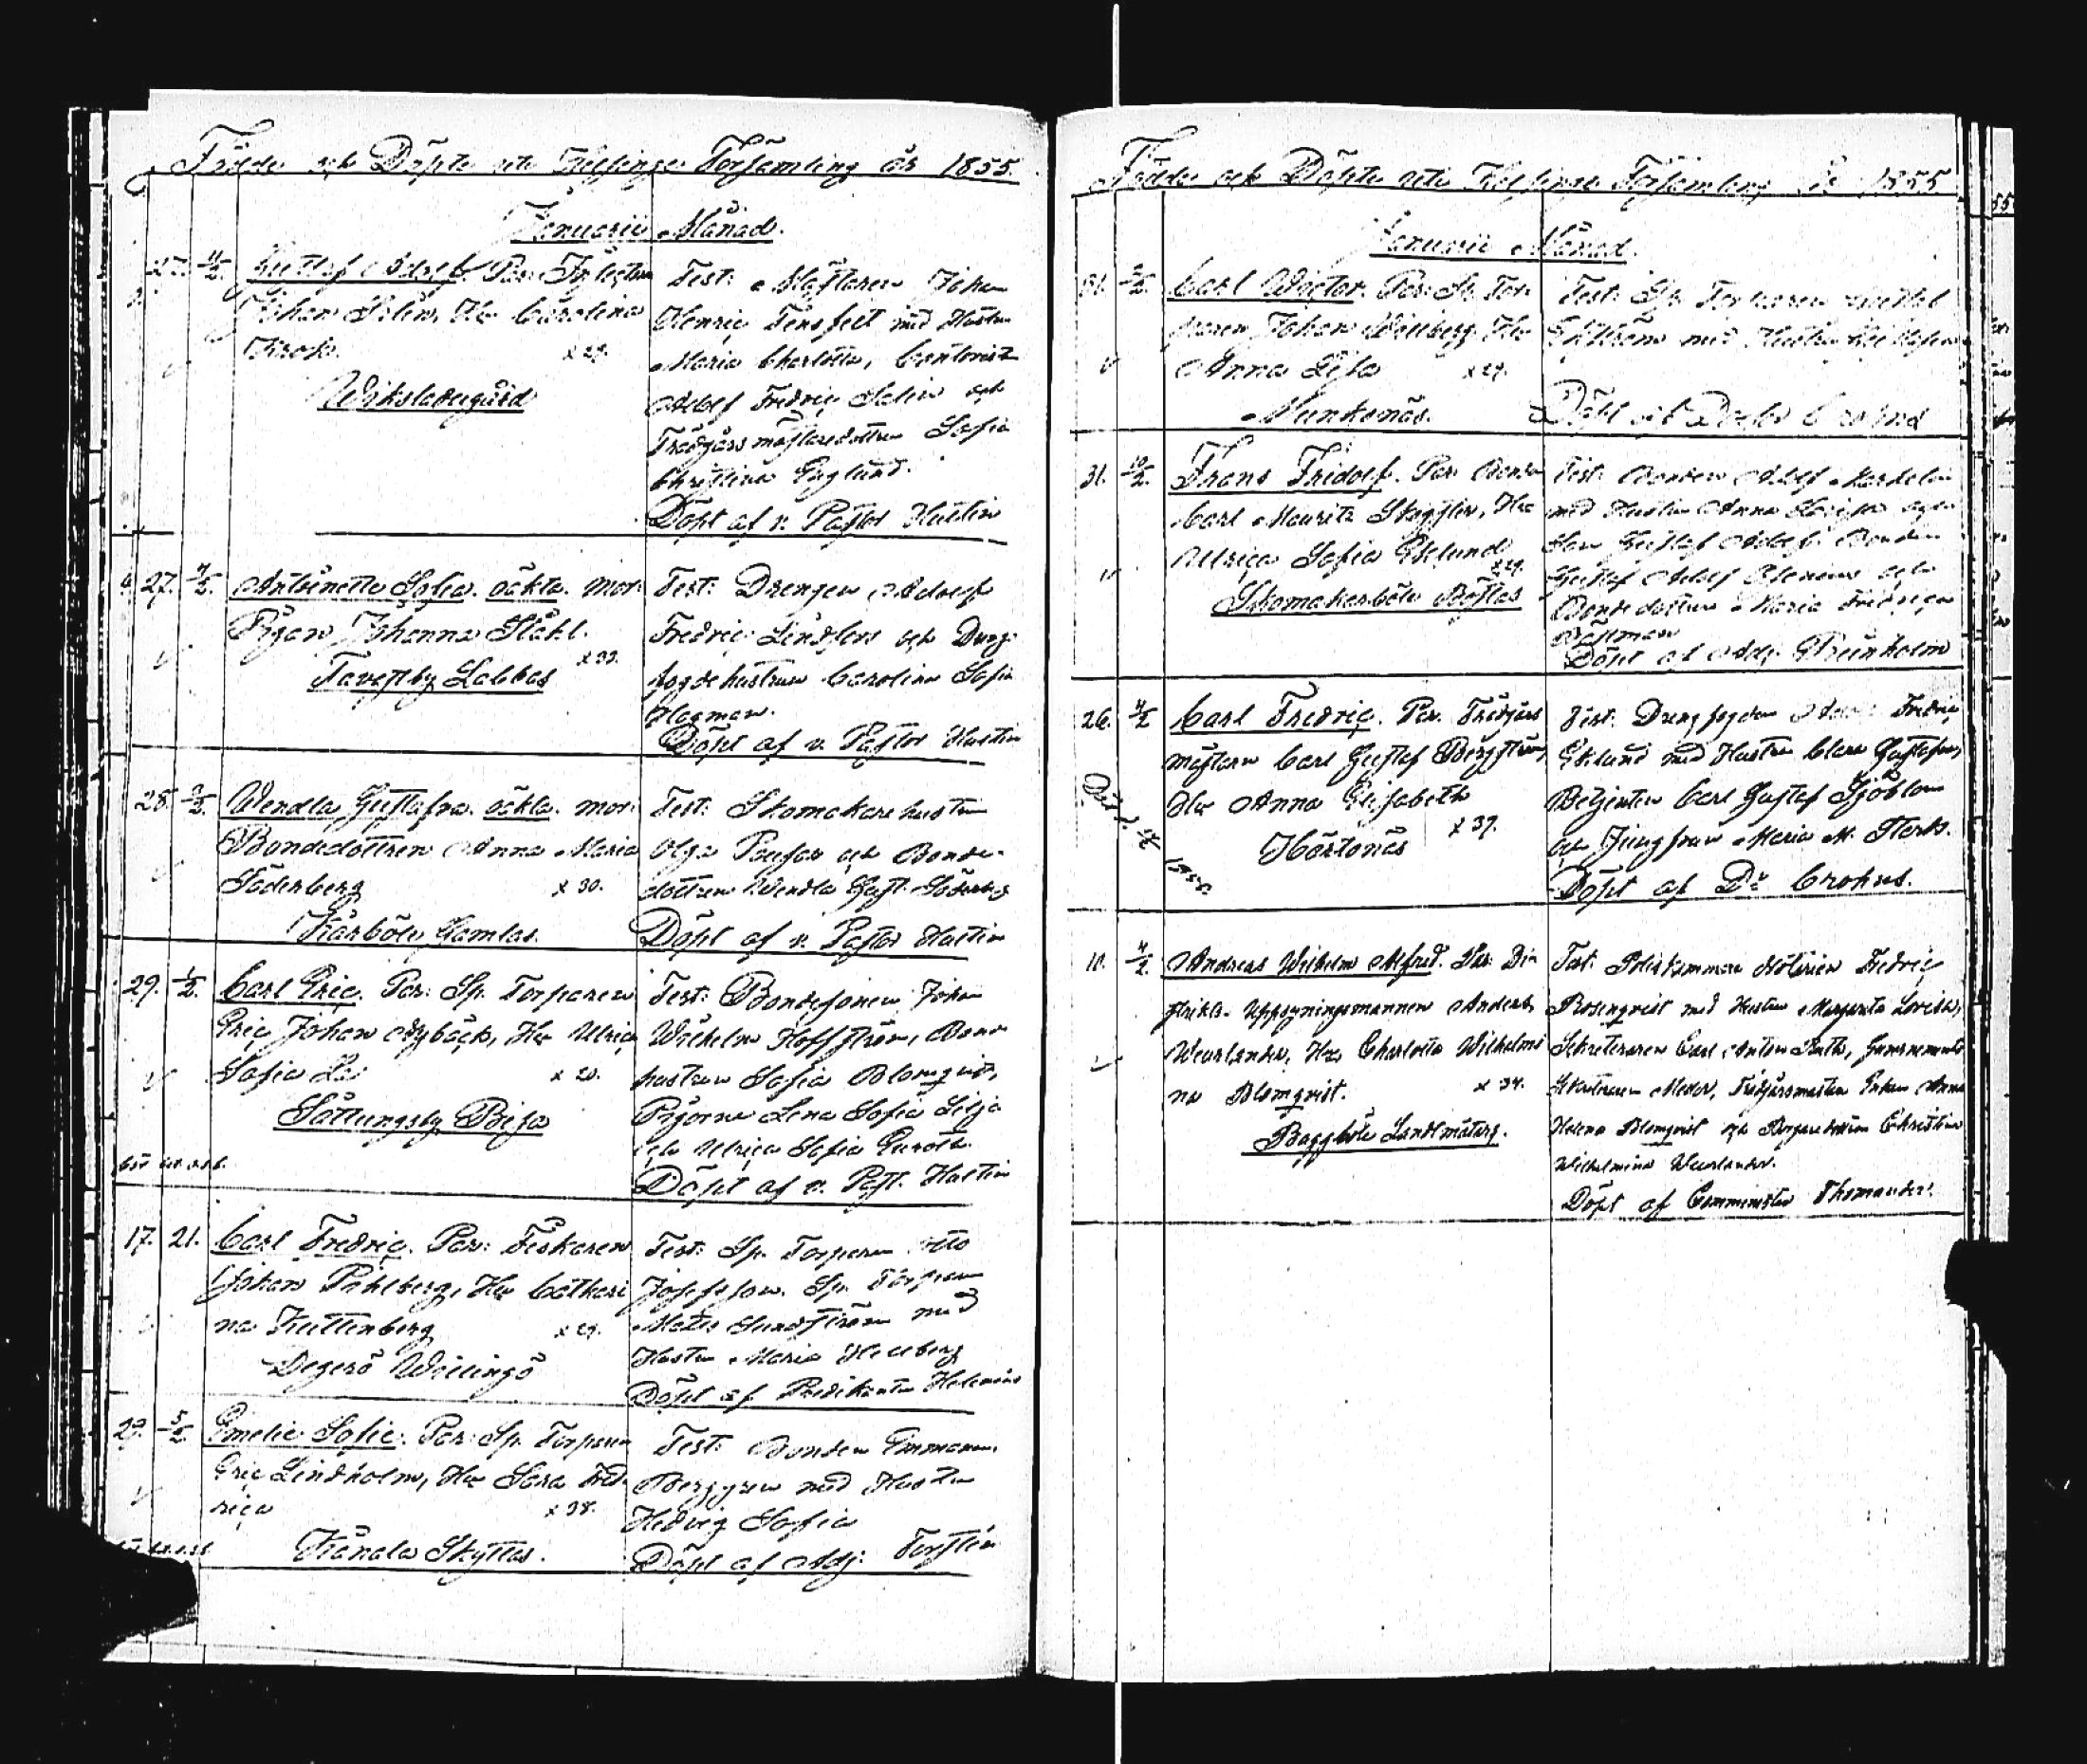 Födde och Döpte uti Helsinge Församling år 1855.
Januarii Månad.
27. 11/2. Gustaf Adolf. Par: Inspector
Johan Selin, Hu Carolina
Krook. x 29.
Wiksladugård
Test: Mästaren Johan
Henric med Hustru
Maria Charlotta, Cantorist
Adolf Fredric Selin och
Trädgårsmästaredottren Sofia
Christina Englund.
Döpt af v. Pastor Hultin
27. 4/2. Antoinette Sofia. oäkta. mor:
Pigan Johanna Ståhl.
x 33.
Tavestby Labbas
Test: Drengen Adolf
Fredric Lindfors och Dreng-
fogdehustrun Carolina Sofia
Hagman.
Döpt af v. Pastor Hultin
28. 3/2. Wendla Gustafva. oäkta. mor:
Bondedottren Anna Maria
Söderberg x 30.
Kårböle Gamlas.
Test: Skomakare hustrun
Olga och Bonde-
dottren Wendla Gust. Söderberg
Döpt af v. Pastor Hultin
29. 1/2. Carl Eric. Par: Sp. Torparen
Eric Johan Nybäck, Hu Ulrica
Sofia x 20.
Sottungsby Bisa
Test: Bondesonen Johan
Wilhelm Hoffström, Bond
hustrun Sofia Blomqvist,
Pigorna Lena Sofia Lilja
och Ulrica Sofia
Döpt af v. Past. Hultin
17. 21. Carl Fredric. Par: Fiskaren
Johan Påhlberg, Hu Cathari
na Kuttenberg x 29.
Degerö Willingö
Test: Sp. Torparen Otto
Josefsson. Sp. Torparen
Mats Sundström med
Hustru Maria Hedberg
Döpt af Predikanten Helenius
29. 5/2. Emelie Sofie. Par: Sp. Torparen
Eric Lindholm, Hu Sara Fred-
rica x 38.
Kånala Skyttas.
Test: Bonden Emmanuel
Berggren med Hustru
Hedvig Sofia
Döpt af Adj. Forstén
Födde och Döpte uti Helsinge Församling år 1855
Januarii Månad.
31. 2/2. Carl Wictor. Par: Sp. Tor-
paren Johan Willberg, Hu
Anna Lisa x 29.
Munksnäs.
Test: Sp. Torparen
Ekström med Hustru
Döpt af Doctor Crohns
31. 10/2. Frans Fridolf. Par: Bonden
Carl Mauritz Skogster, Hu
Ulrica Sofia Eklund
x 29.
Skomakarböle Böstas
Test: Bonden Adolf
med Hustru Anna Lovisa och
Son Gustaf Adolf. Bonden
Gustaf Adolf och
Bondedottren Maria Fredrica
Döpt af Adj. Grönholm
26. 4/2 Carl Fredric. Par: Trädgårs
mästaren Carl Gustaf Bergström,
Hu Anna Elisabeth
x 37.
Hörtonäs
Test: Drengfogden Fredric
Eklund med Hustru Clara Gustafva,
Betjenten Carl Gustaf Sjöblom
och Jungfrun Maria M. Sterk.
Döpt af Dr Crohns.
10. 4/2. Andreas Wilhelm Alfred. Par: Di-
strikts-Uppsyningsmannen Anders
Weurlander, Hu Charlotta Wilhelmi
na Blomqvist. x 34.
Baggböle Landtmäters.
Test: Poliskammar Notarien Fredric
Rosenqvist med Hustru Margareta Lovisa,
Sekreteraren Carl Anton, Guvernements
Sekreteraren, Trädgårsmästare Enkan Anna
Helena Blomqvist och Borgaredottren Christina
Wilhelmina Weurlander.
Döpt af Comminister Thomander.